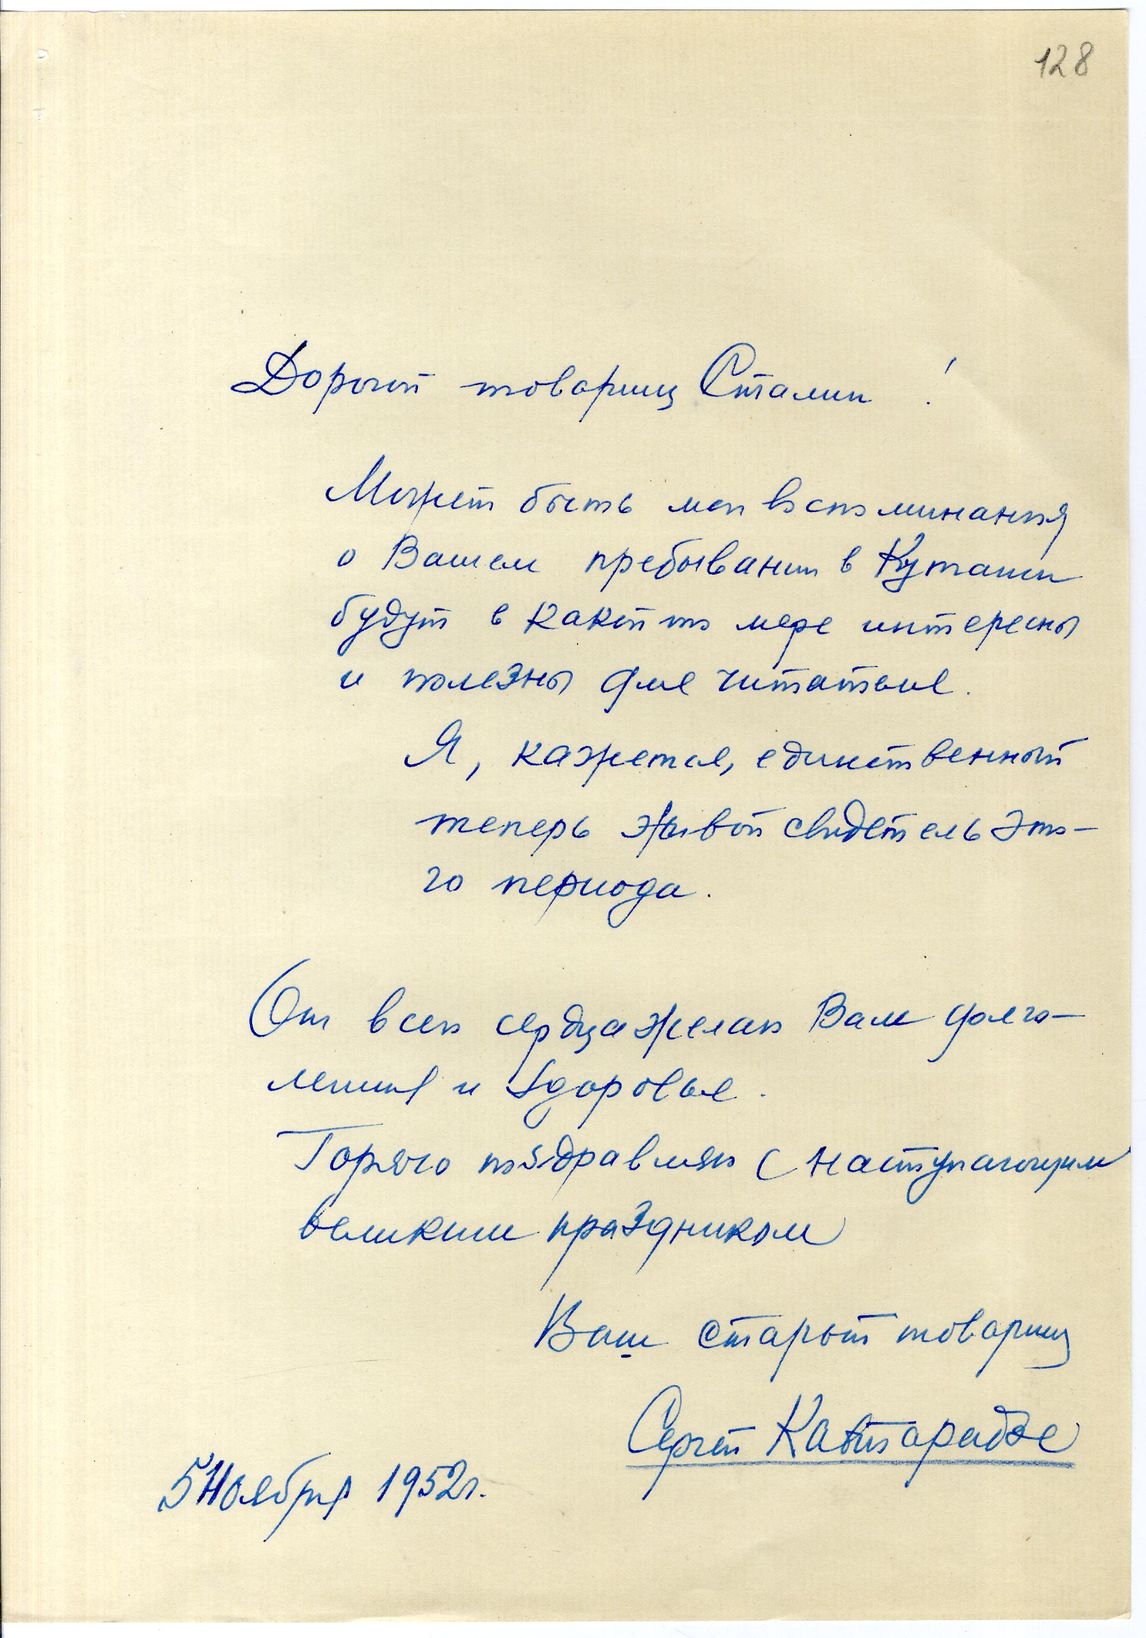 128
Дорогой товарищ Сталин!
Может быть мои воспоминания
о Вашем пребывании в Кутаиси
будут в какой то мере интересны
и полезны для читателя.
Я, кажется, единственный
теперь живой свидетель это-
го периода.
От всего сердца желаю Вам долго-
летия и здоровья.
Горячо поздравляю с наступающим
великим праздником
Ваш старый товарищ
Сергей Кавтарадзе
5 Ноября 1952г.